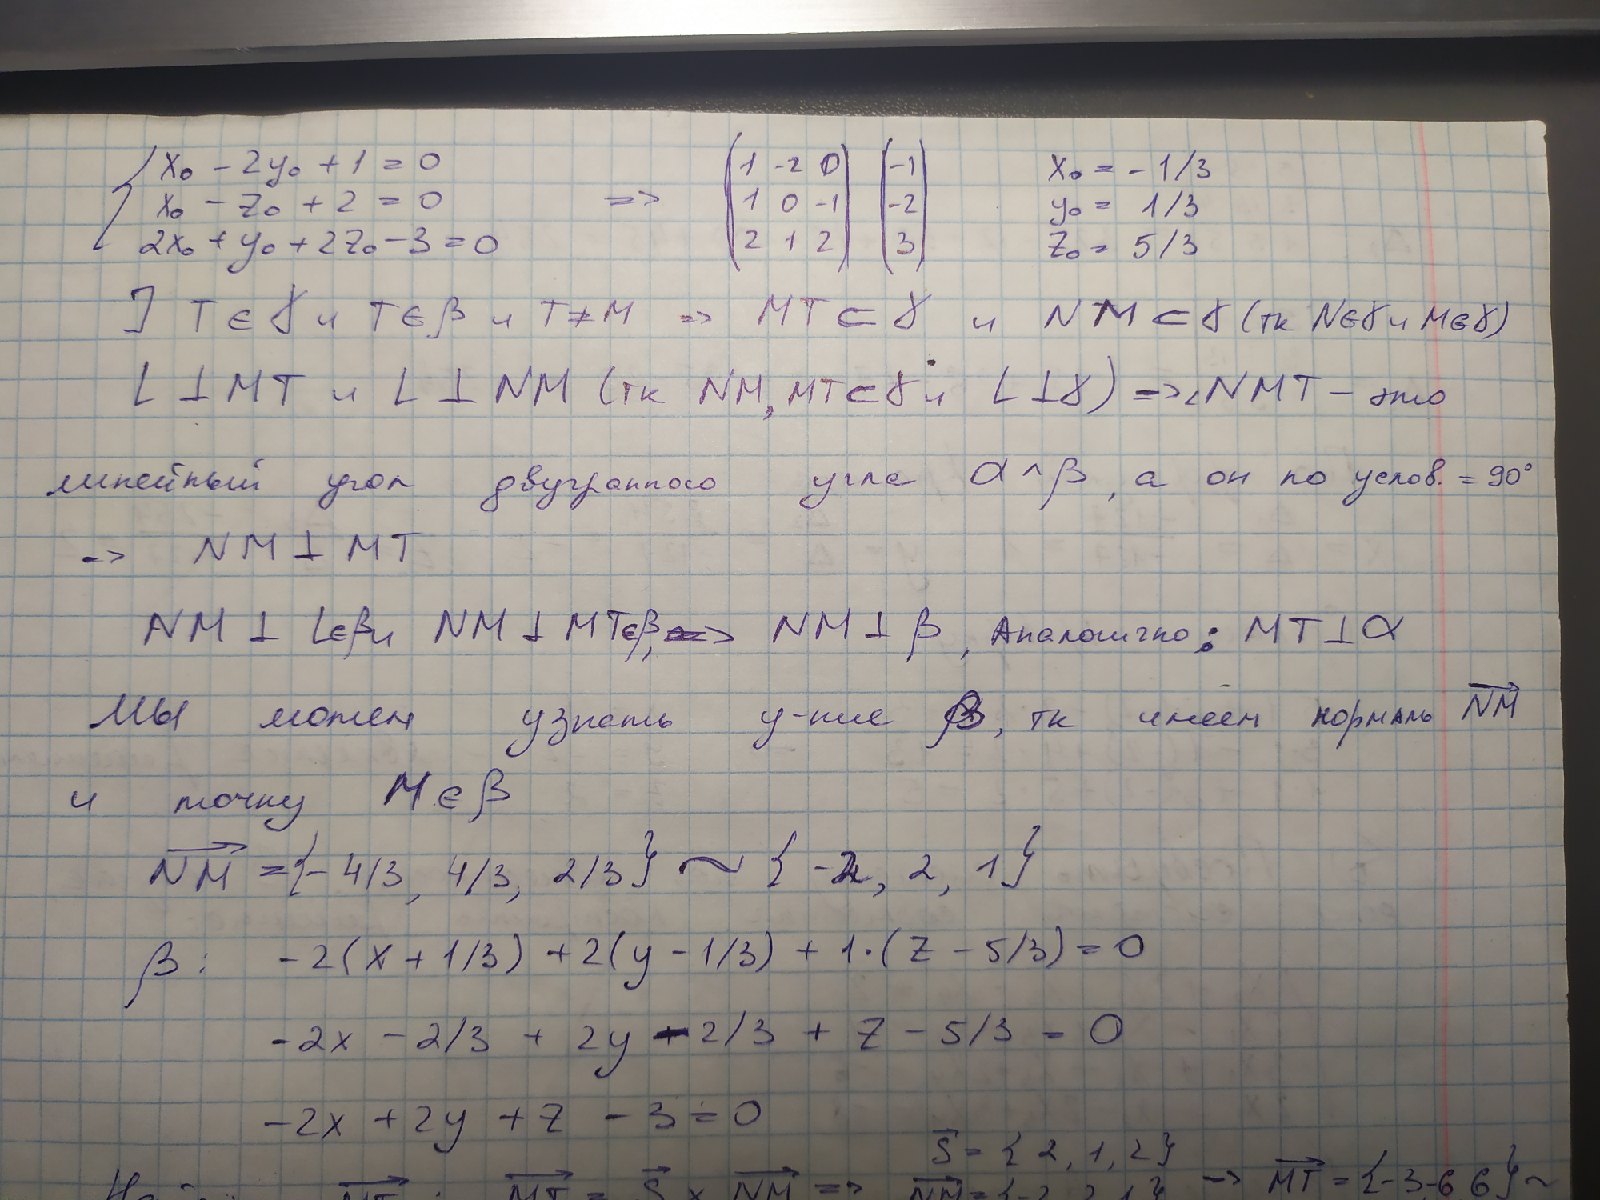 x₀ - 2y₀ + 1 = 0
x₀ - z₀ + 2 = 0
2x₀ + y₀ + 2z₀ - 3 = 0
=>
(1 -2 0) (-1)
(1 0 -1) (-2)
(2 1 2) (3)
x₀ = -1/3
y₀ = 1/3
z₀ = 5/3
] T ∈ γ и T ∈ β и T ≠ M => MT ⊂ γ и NM ⊂ γ (тк N∈γ и M∈γ)
L ⊥ MT и L ⊥ NM (тк NM, MT ⊂ γ и L ⊥ γ) => ∠NMT - это
линейный угол двугранного угла α ^ β, а он по услов. = 90°
=> NM ⊥ MT
NM ⊥ L∈β и NM ⊥ MT∈β, => NM ⊥ β, Аналогично: MT ⊥ α
Мы можем узнать у-ние β, тк имеем нормаль NM
и точку M ∈ β
NM = {-4/3, 4/3, 2/3} ~ {-2, 2, 1}
β: -2(x + 1/3) + 2(y - 1/3) + 1·(z - 5/3) = 0
-2x - 2/3 + 2y - 2/3 + z - 5/3 = 0
-2x + 2y + z - 3 = 0
S = {2, 1, 2}
MT = S × NM => -> MT = {-3, -6, 6} ~